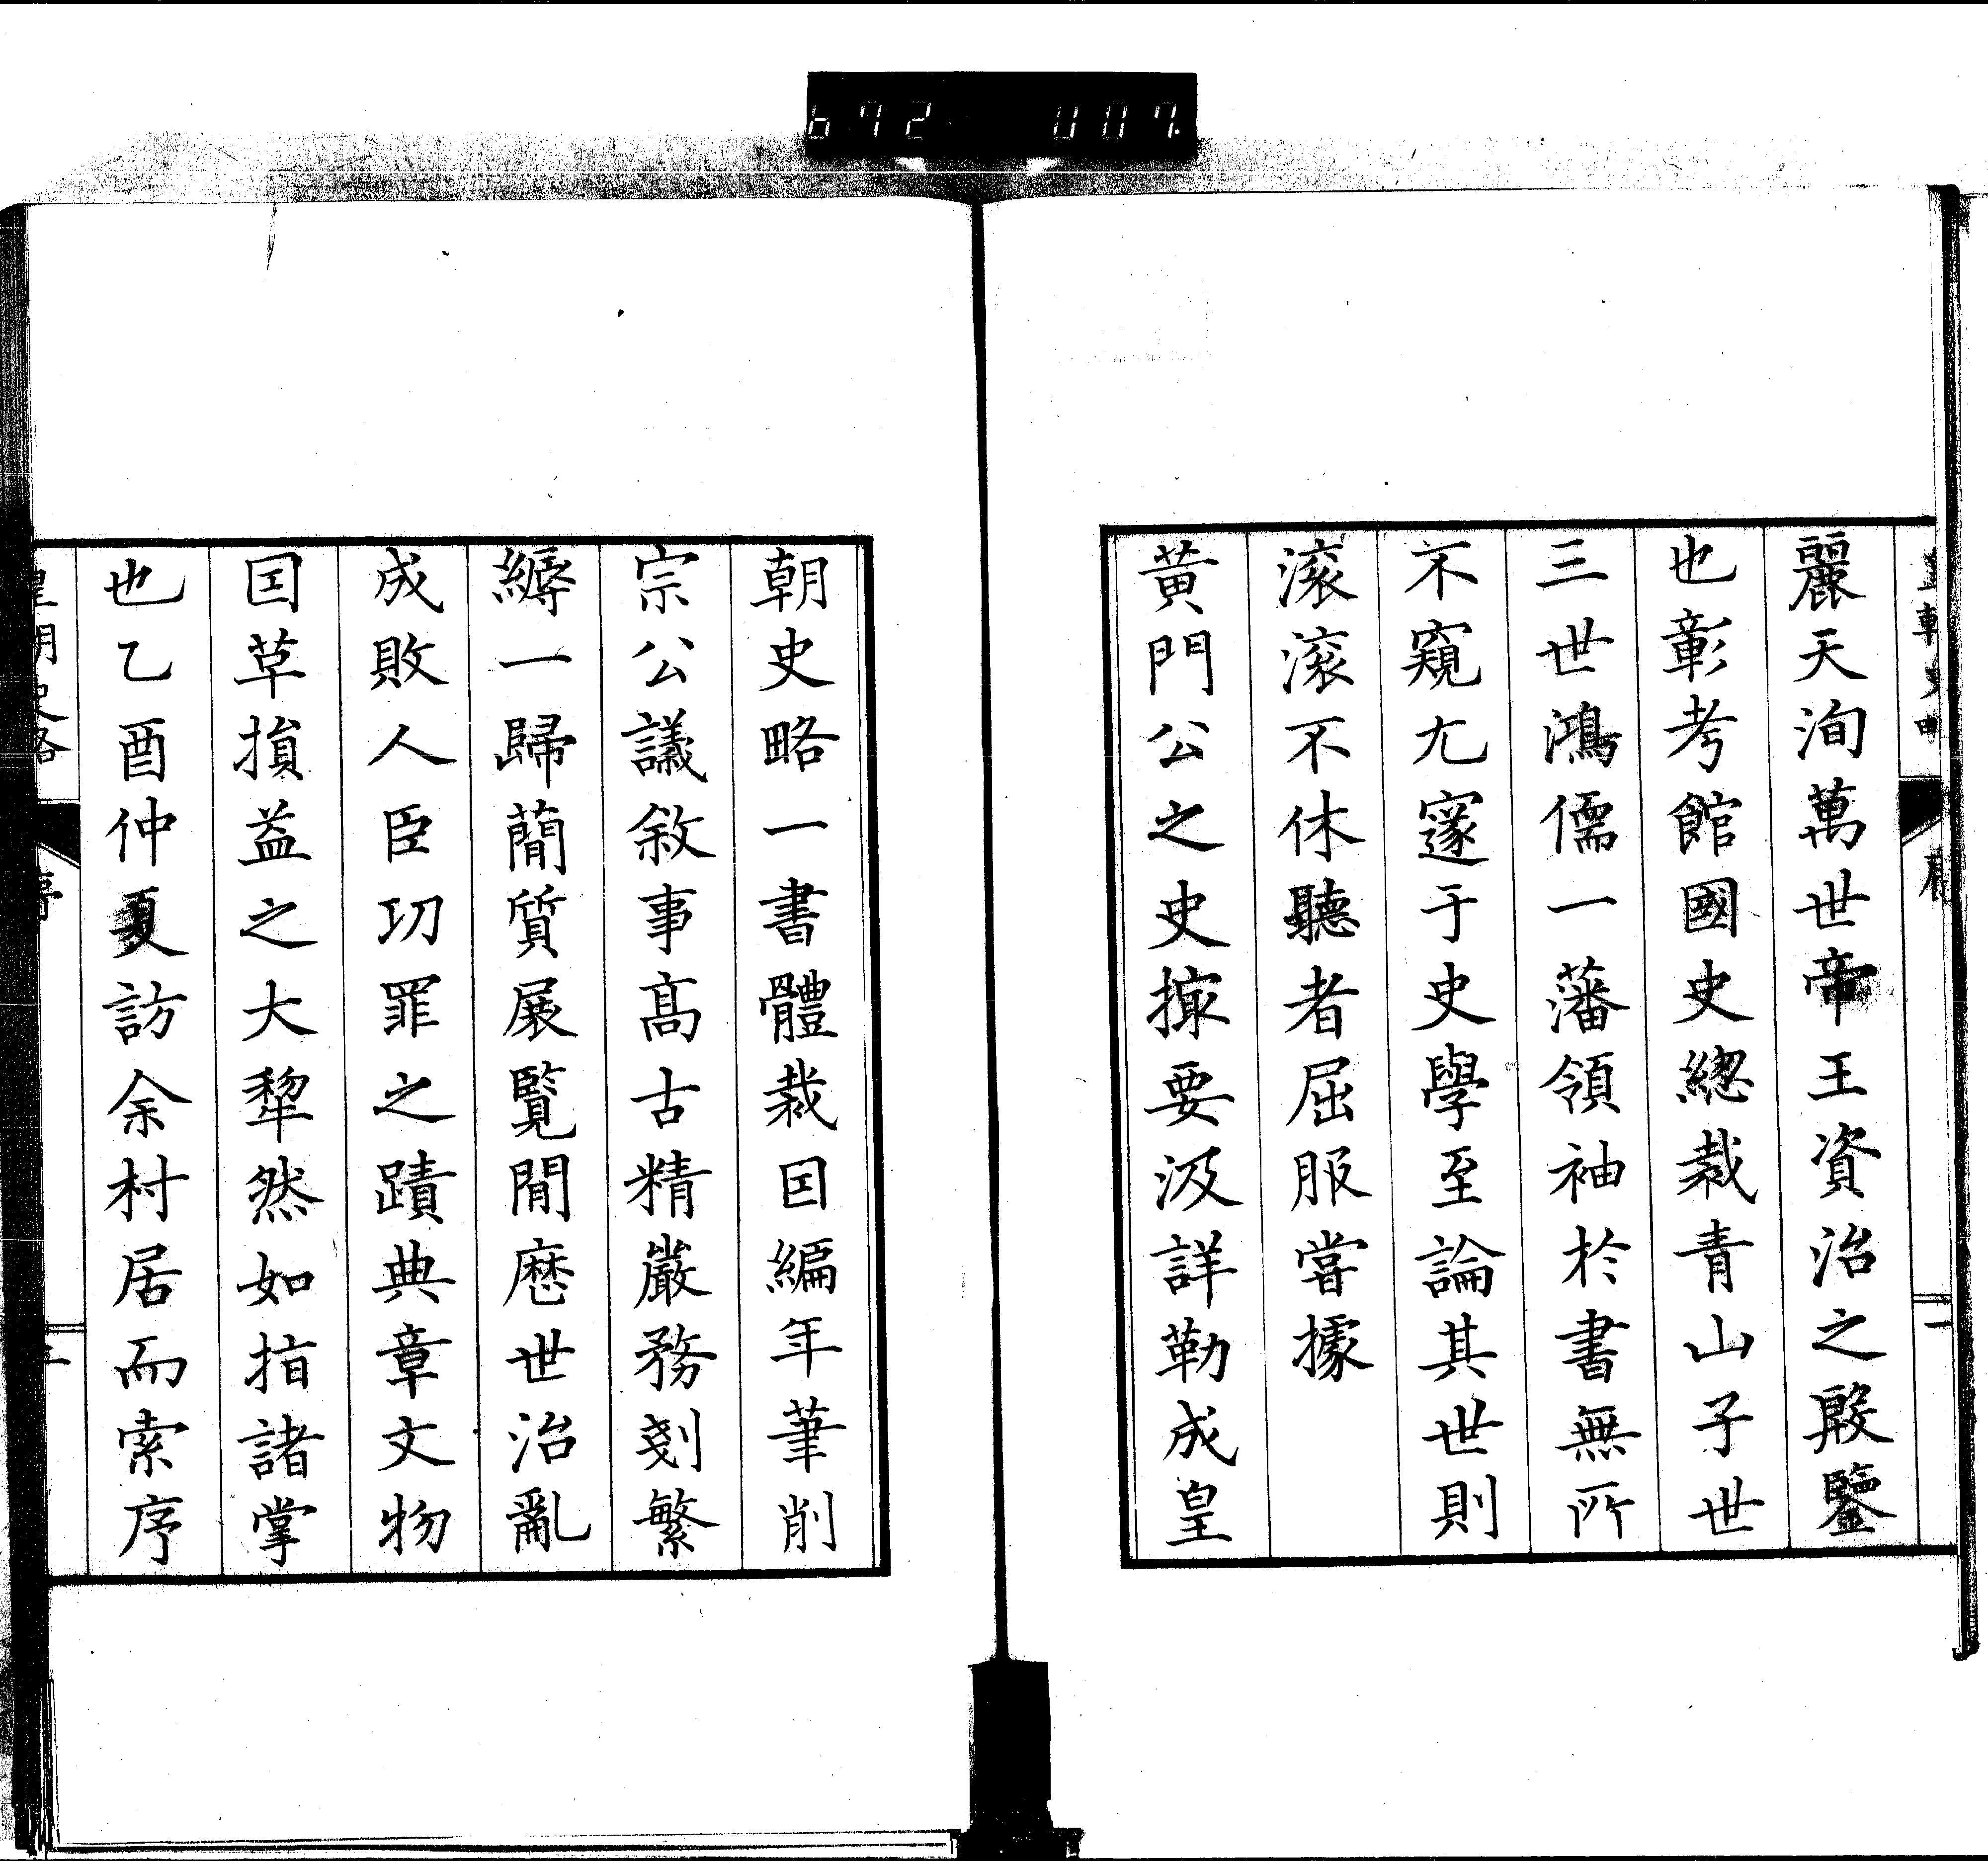 麗天洵萬世帝王資治之殷鑒
也彰考館國史總裁青山子世
三世鴻儒一藩領袖於書無所
不窺尤邃于史學至論其世則
滾滾不休聽者屈服嘗據
黃門公之史撮要汲詳勒成皇
朝史略一書體裁因編年筆削
宗公議敘事高古精嚴務剗繁
縟一歸簡質展覽閒歴世治亂
成敗人臣功罪之蹟典章文物
因革損益之大犂然如指諸掌
也乙酉仲夏訪余村居而索序
皇朝史略
序
672 007